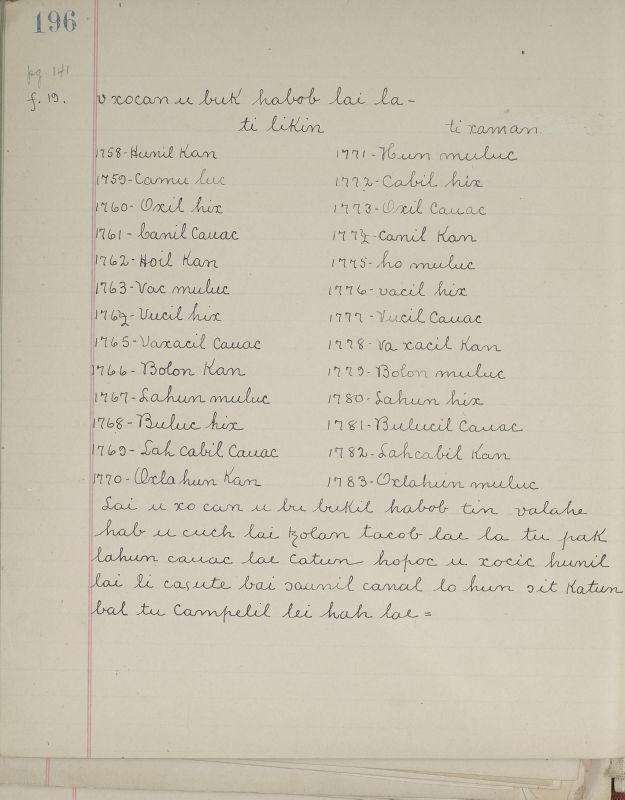 196
pg. 141
f. 19.
v xocan u buk habob lai la-
ti likin
ti xaman
1758-Hunil Kan
1759-Camu luc
1760-Oxil hix
1761-Canil Cauac
1762-Hoil Kan
1763-Vac muluc
1764-Vucil hix
1765-Vaxacil Cauac
1766-Bolon Kan
1767-Lahun muluc
1768-Buluc hix
1769-Lah cabil Cauac
1770-Oxlahun Kan
1771-Hun muluc
1772-Cabil hix
1773-Oxil Cauac
1774-Canil Kan
1775-ho muluc
1776-vacil hix
1777-Vucil Cauac
1778-Va xacil Kan
1779-Bolon muluc
1780-Lahun hix
1781-Bulucil Cauac
1782-Lahcabil Kan
1783-Oxlahun muluc
Lai u xo can u bu bukil habob tin valahe
hab u cuch lai tzolan tacob lae la tu pak
lahun cauac lae Catun hopoc u xocic hunil
lai li caɔute bai ɔaunil canal lo hun ɔit Katun
bal tu Campelil lei hah lae=